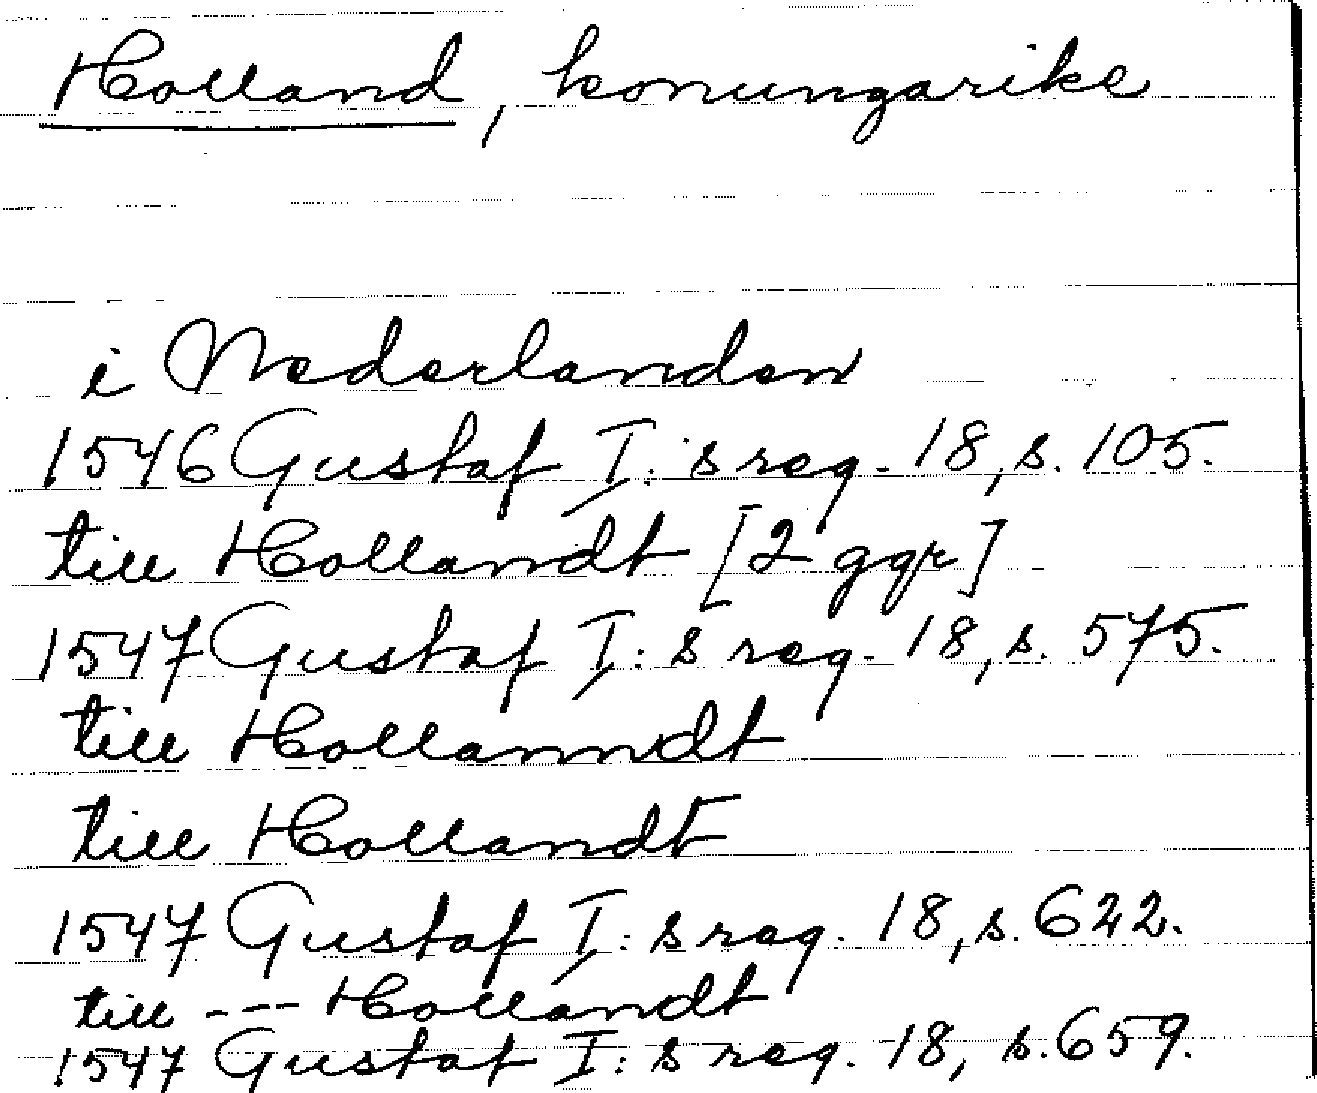 Holland, konungarike
i Nederlanden
1546 Gustaf I:s reg. 18, s. 105.
till Hollandt [2 ggr]
1547 Gustaf I:s reg. 18, s. 575.
till Hollanndt
till Hollandt
1547 Gustaf I:s reg. 18, s. 622.
till --- Hollandt
1547 Gustaf I:s reg. 18, s. 659.